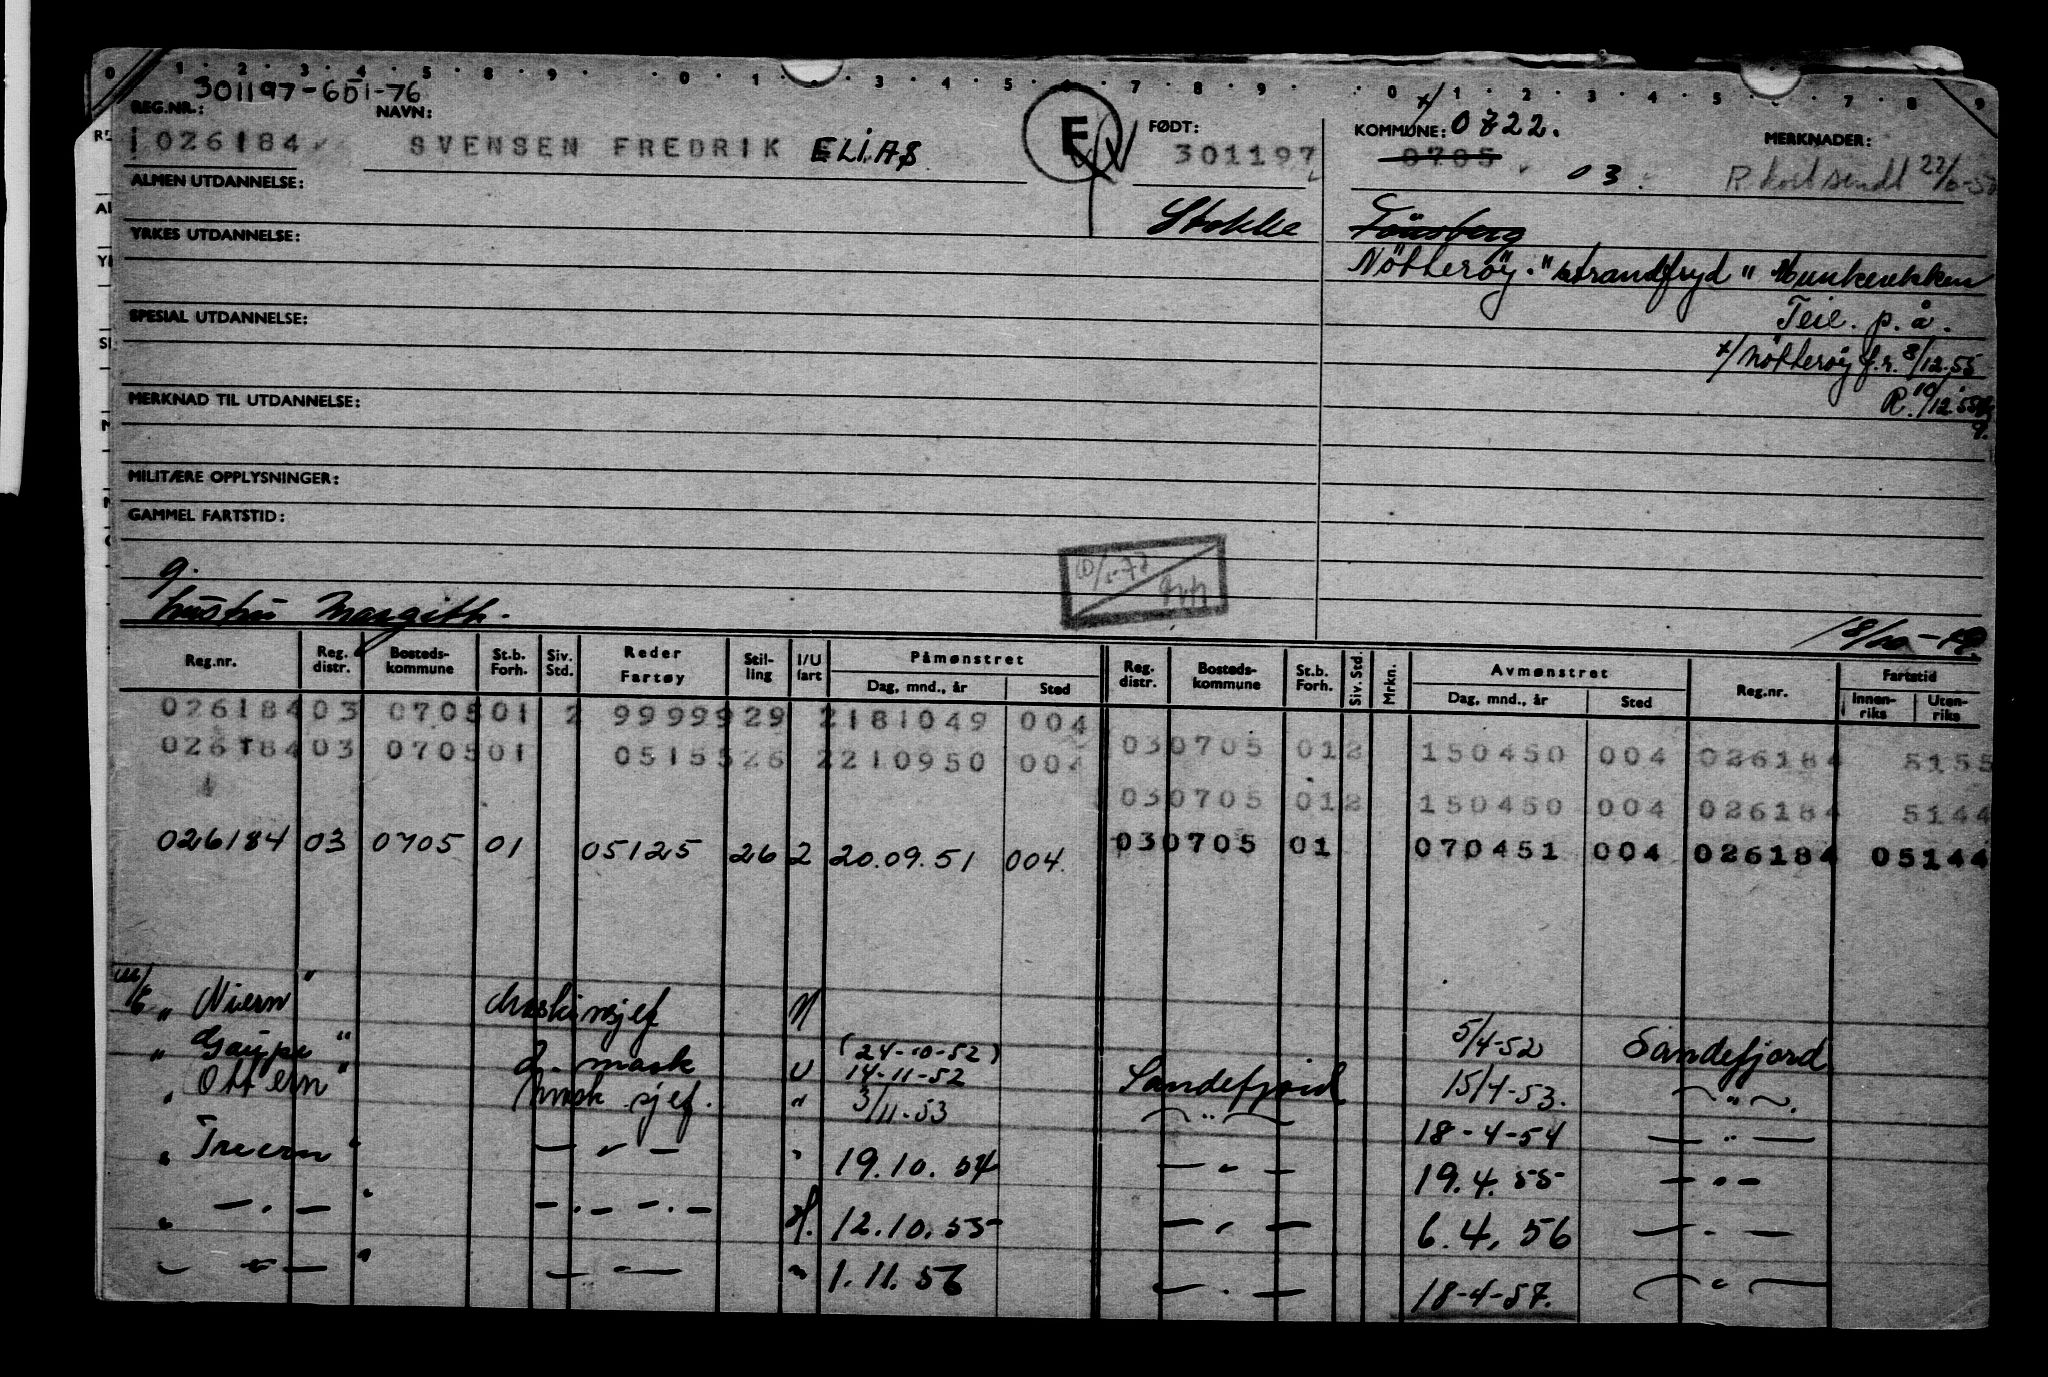 301197-651-76
REG.NR.: NAVN: FØDT: KOMMUNE: x/ 0722. MERKNADER:
026184 SVENSEN FREDRIK ELIAS E 301197 0705 03. R.kort sendt 22/
ALMEN UTDANNELSE:
Stokke Tönsberg
YRKES UTDANNELSE:
Nötteröy. "Strandfryd" Munkerekken
Teie. p.å.
SPESIAL UTDANNELSE:
x/ Nötteröy f.r. 8/12.55
R. 10/12.55
MERKNAD TIL UTDANNELSE:
9.
MILITÆRE OPPLYSNINGER:
GAMMEL FARTSTID:
g.
hustru Margith.
18/10-49
Reg.nr. Reg. distr. Bosteds-kommune St.b. Forh. Siv. Std. Reder Fartøy Stil-ling I/U fart Påmønstret Dag, mnd., år Sted Reg. distr. Bosteds-kommune St.b. Forh. Siv. Std. Mrkn. Avmønstret Dag, mnd., år Sted Reg.nr. Fartstid Innen-riks Uten-riks
026184 03 0705 01 2 99999 29 2 181049 004
026184 03 0705 01 05155 26 2 210950 004 03 0705 01 2 150450 004 026184 5155
03 0705 01 2 150450 004 026184 5144
026184 03 0705 01 05125 26 2 20.09.51 004. 03 0705 01 070451 004 026184 05144
" Niern " Maskinsjef 5/4-52 Sandefjord
" Gaupe " 2. mask u (24-10-52) 14-11-52 Sandefjord 15/4-53. — " —.
" Ottern " mask sjef. " 3/11-53 — " — 18-4-54 — " —
" Treern " — " — " 19.10.54 — " — 19.4.55 — " —
" — " — " — " — " — 12.10.55 — " — 6.4.56 — " —
" — " — " — " — " 1.11.56 — " — 18-4-57. — " —